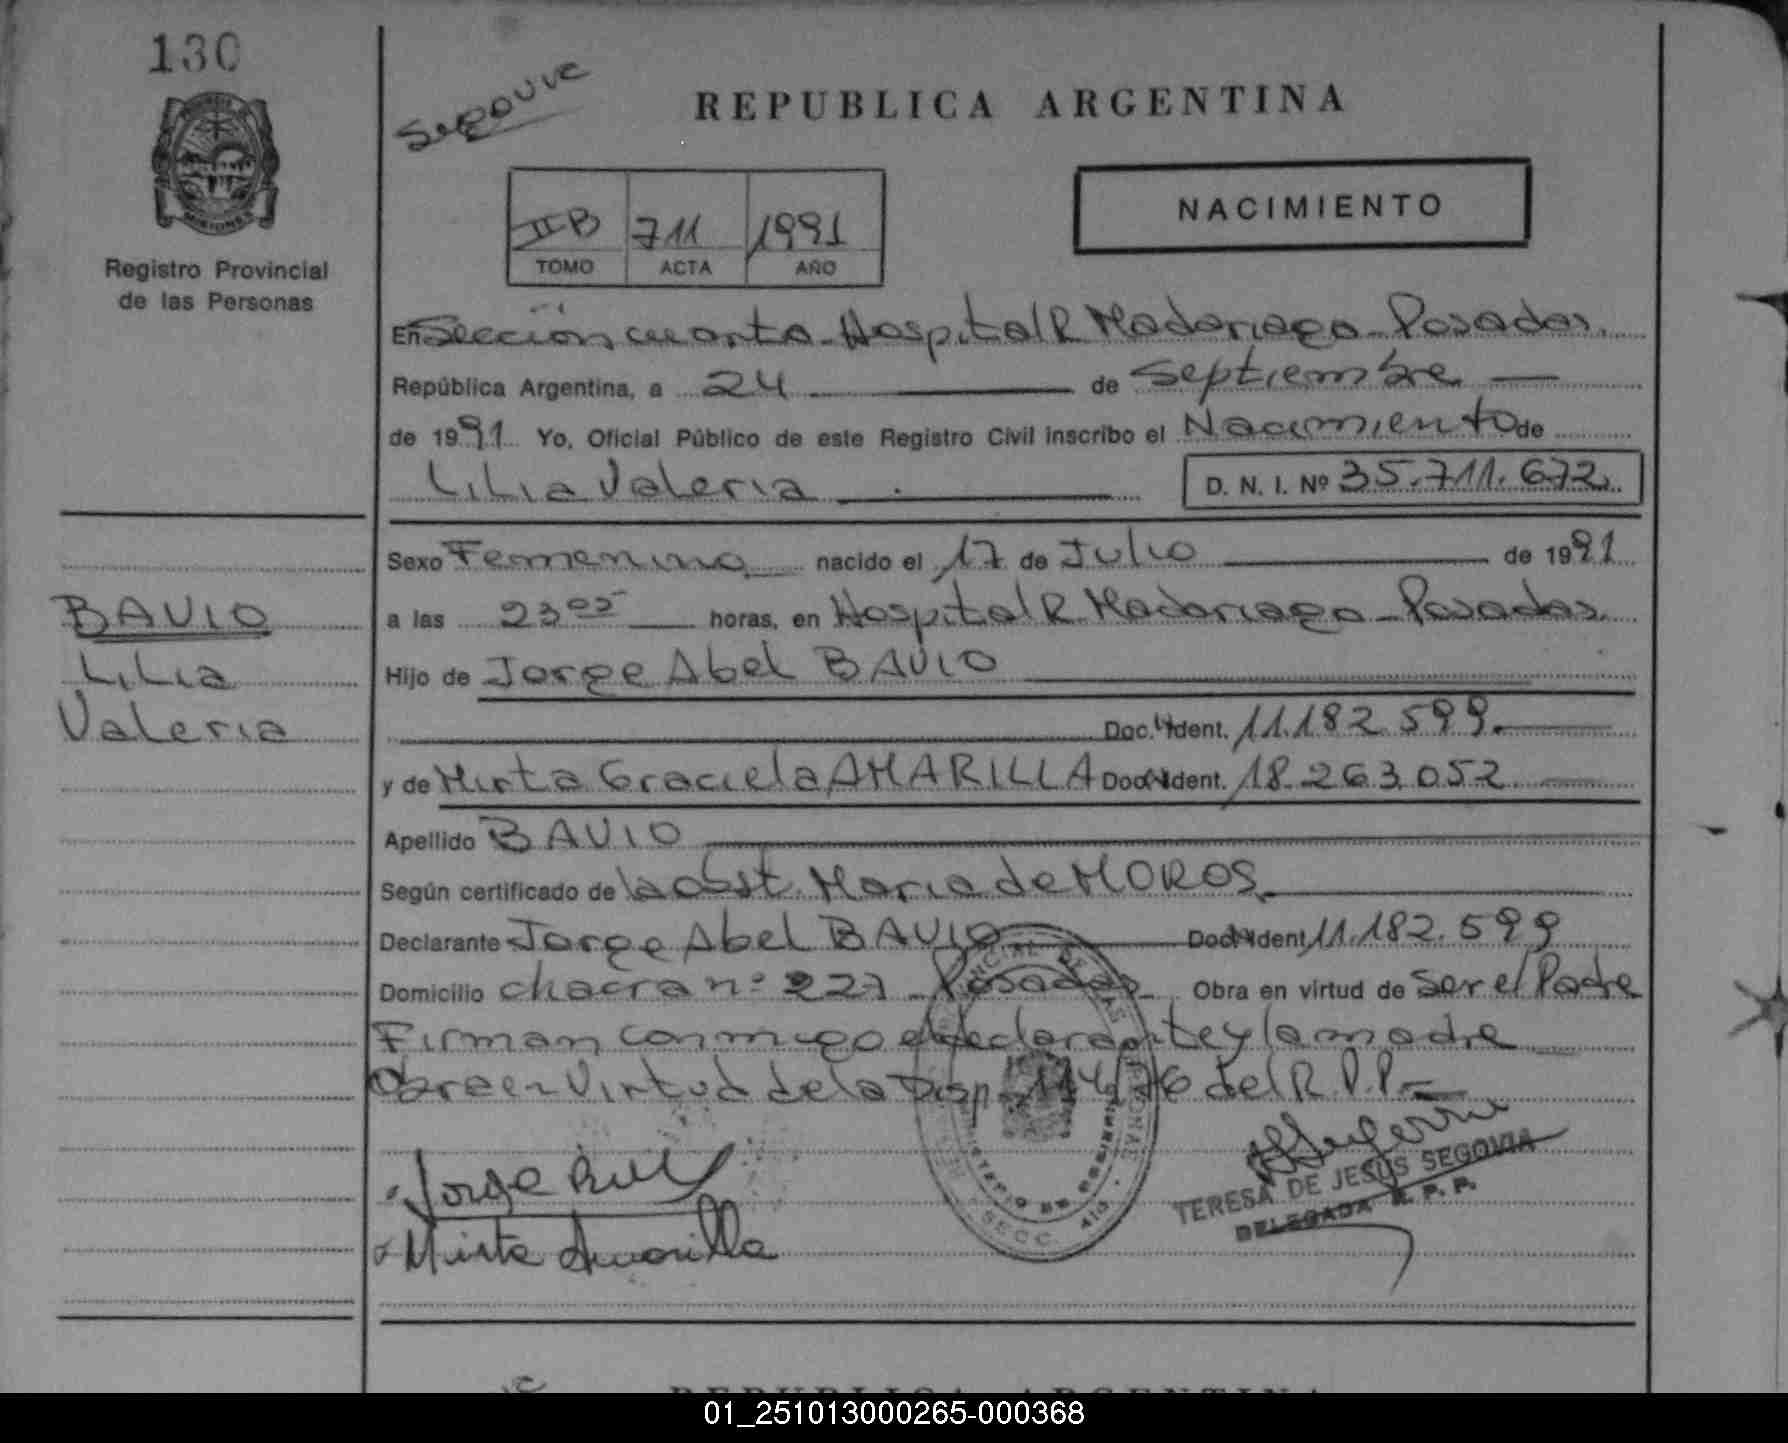 130
Segovia
REPUBLICA ARGENTINA
NACIMIENTO
IIB 711 1991
TOMO ACTA AÑO
MISIONES
Registro Provincial
de las Personas
En Sección cuarta - Hospital R Madariaga - Posadas.
República Argentina, a 24 de Septiembre
de 1991 Yo, Oficial Público de este Registro Civil inscribo el Nacimiento de
Lilia Valeria D. N. I. Nº 35.711.672.
Sexo Femenino nacido el 17 de Julio de 1991
a las 23 05 horas, en Hospital R. Madariaga - Posadas.
BAVIO
Lilia
Valeria
Hijo de Jorge Abel BAVIO
Doc. Ident. 11.182.599.
y de Mirta Graciela AMARILLA Doc. Ident. 18.263.052
Apellido BAVIO
Según certificado de la obst. Maria de MOROS.
Declarante Jorge Abel BAVIO Doc. Ident 11.182.599
Domicilio chacra nº 227 - Posadas Obra en virtud de ser el Padre
Firman conmigo el declarante y la madre
Obra en Virtud de la Disp. 114/76 del R.P.P.-
Jorge
Mirta Amarilla
SECC. 4ta.
TERESA DE JESUS SEGOVIA
DELEGADA R. P. P.
REPUBLICA ARGENTINA
01_251013000265-000368